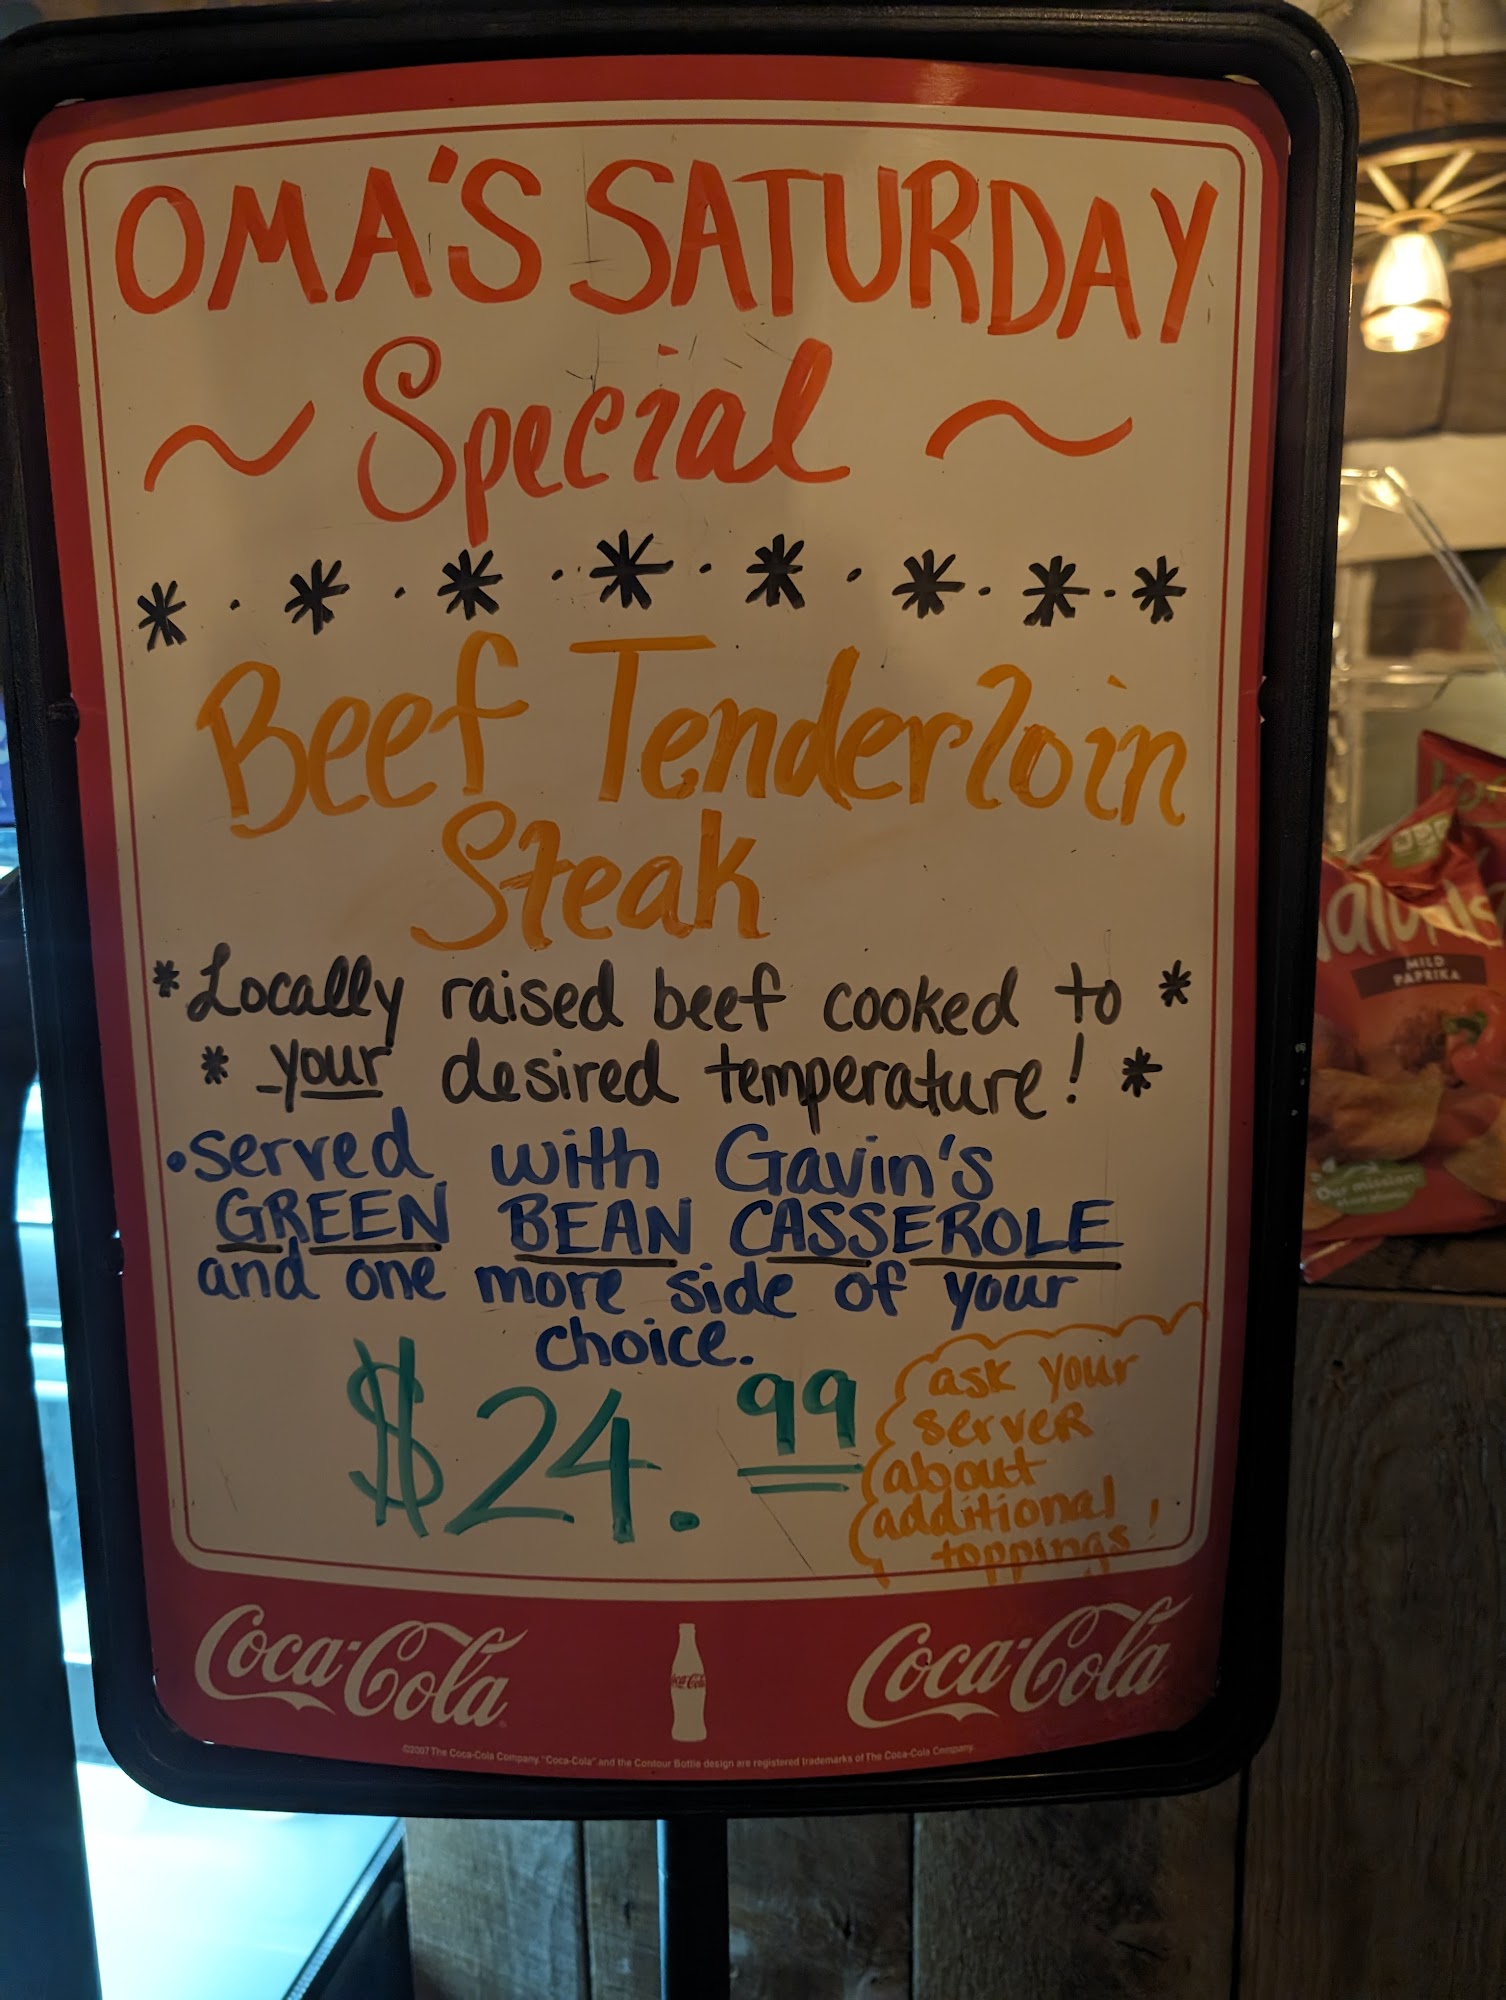 OMA'S SATURDAY
~ Special ~
* · * · * · * · * · * · * · *
Beef Tenderloin
Steak
*Locally raised beef cooked to *
* your desired temperature! *
• served with Gavin's
GREEN BEAN CASSEROLE
and one more side of your
choice.
$24.99
ask your
server
about
additional
toppings!
Coca-Cola
Coca-Cola
Coca-Cola
©2007 The Coca-Cola Company. "Coca-Cola" and the Contour Bottle design are registered trademarks of The Coca-Cola Company.
MILD
PAPRIKA
Our mission: